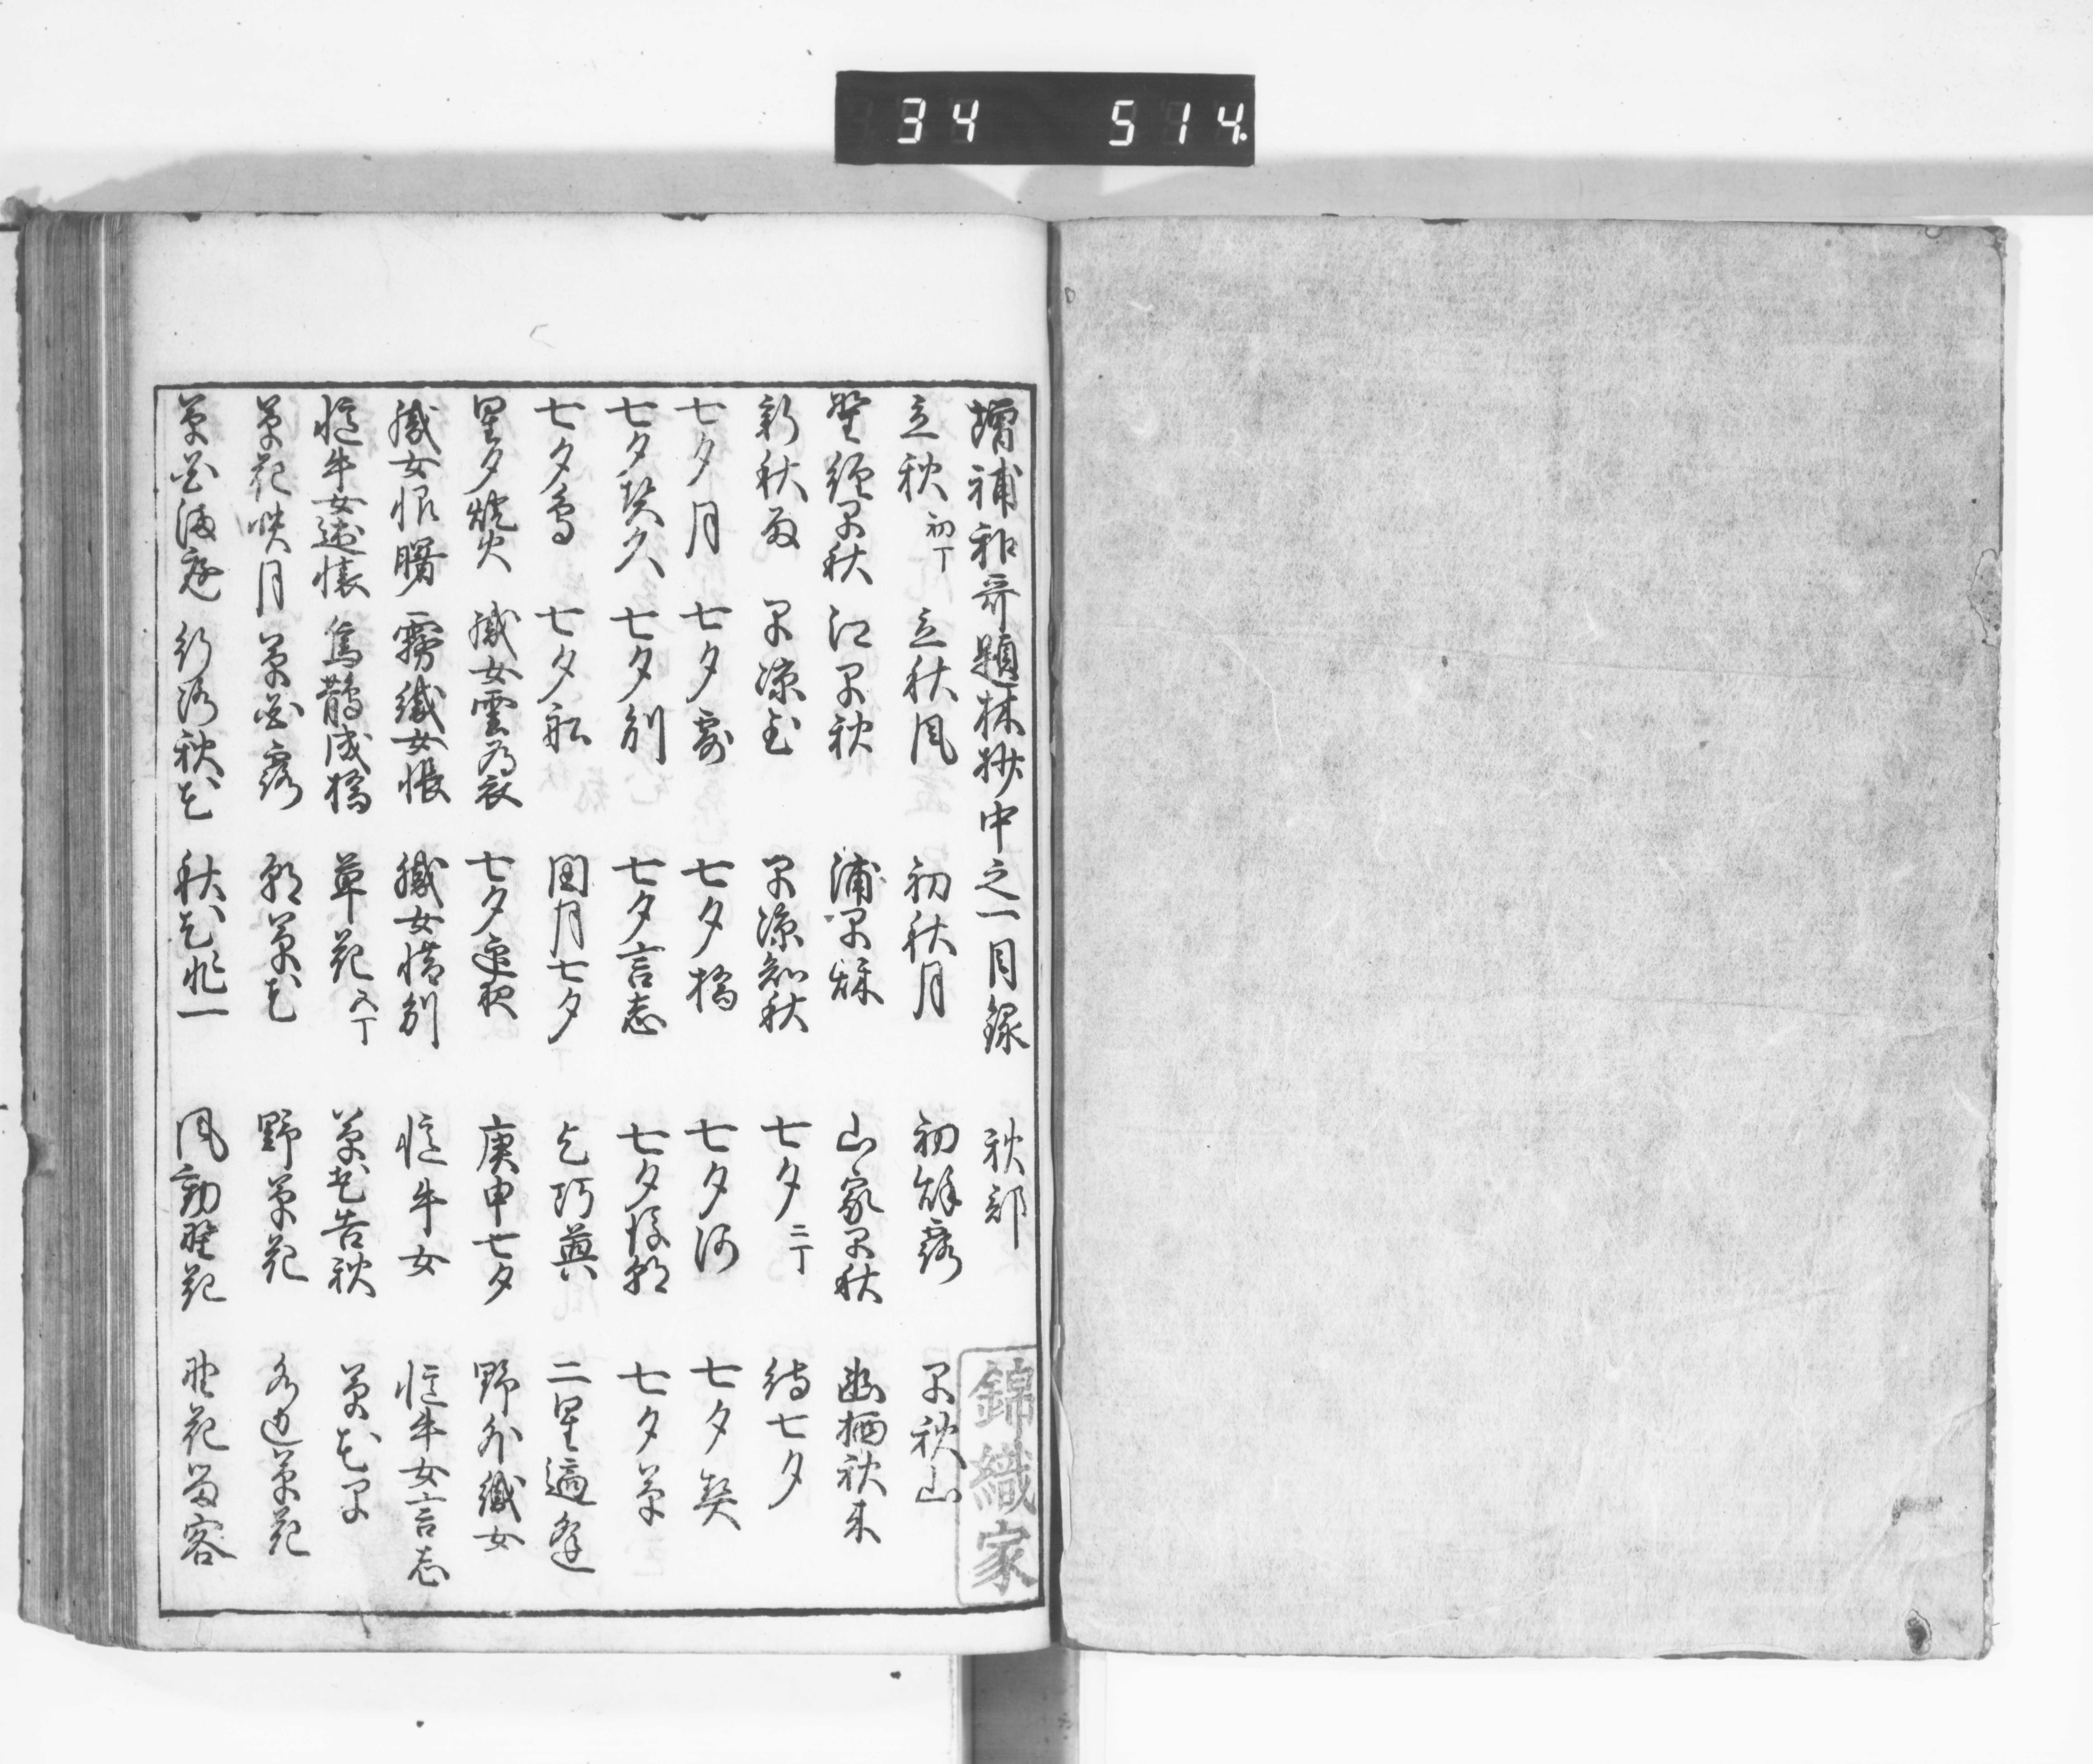 34 514.
増補和哥題林抄中之一目録 秋部
錦織家
立秋 初丁 立秋風 初秋月 初秋露 早秋山
野径早秋 江早秋 浦早秋 山家早秋 幽栖秋来
新秋雨 早涼至 早涼知秋 七夕 三丁 待七夕
七夕月 七夕霧 七夕橋 七夕河 七夕契
七夕契久 七夕別 七夕言志 七夕後朝 七夕草
七夕鳥 七夕船 閏月七夕 乞巧奠 二星適逢
星夕燈火 織女雲為衣 七夕連夜 庚申七夕 野外織女
織女恨曙 霧織女帳 織女惜別 憶牛女 憶牛女言志
憶牛女述懐 烏鵲成橋 草花 五丁 草花告秋 草花早
草花映月 草花露 朝草花 野草花 水辺草花
草花満庭 行路秋花 秋花非一 風動野花 野花留客